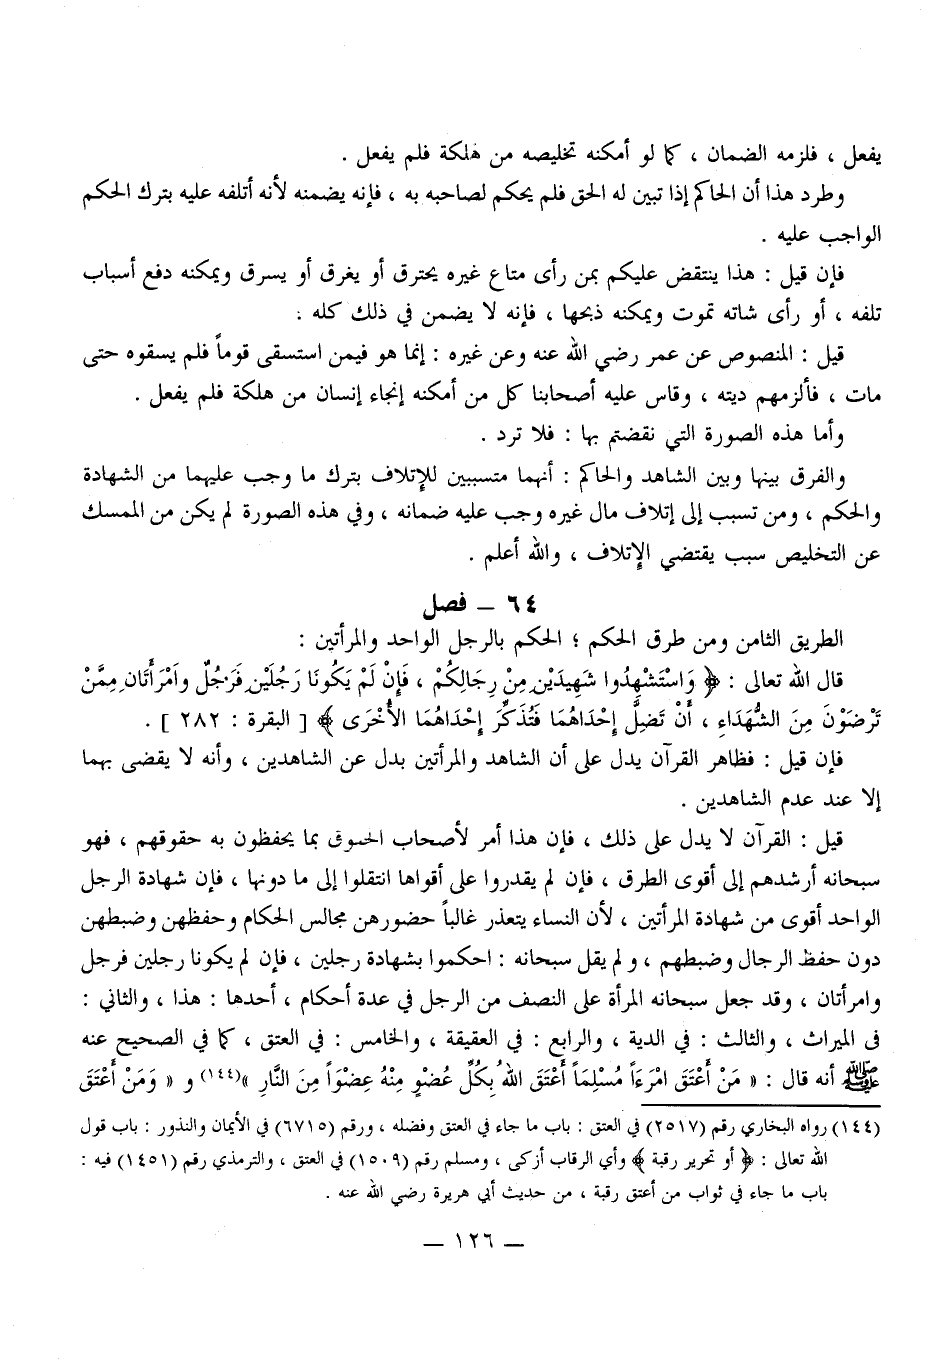 يفعل ، فلزمه الضمان ، كما لو أمكنه تخليصه من هلكة فلم يفعل .
وطرد هذا أن الحاكم إذا تبين له الحق فلم يحكم لصاحبه به ، فإنه يضمنه لأنه أتلفه عليه بترك الحكم
الواجب عليه .
فإن قيل : هذا ينتقض عليكم بمن رأى متاع غيره يحترق أو يغرق أو يسرق ويمكنه دفع أسباب
تلفه ، أو رأى شاته تموت ويمكنه ذبحها ، فإنه لا يضمن في ذلك كله .
قيل : المنصوص عن عمر رضي الله عنه وعن غيره : إنما هو فيمن استسقى قوماً فلم يسقوه حتى
مات ، فألزمهم ديته ، وقاس عليه أصحابنا كل من أمكنه إنجاء إنسان من هلكة فلم يفعل .
وأما هذه الصورة التي نقضتم بها : فلا ترد .
والفرق بينها وبين الشاهد والحاكم : أنهما متسببين للإتلاف بترك ما وجب عليهما من الشهادة
والحكم ، ومن تسبب إلى إتلاف مال غيره وجب عليه ضمانه ، وفي هذه الصورة لم يكن من الممسك
عن التخليص سبب يقتضي الإتلاف ، والله أعلم .
٦٤ – فصل
الطريق الثامن ومن طرق الحكم ؛ الحكم بالرجل الواحد والمرأتين :
قال الله تعالى : ﴿ وَاسْتَشْهِدُوا شَهِيدَيْنِ مِنْ رِجَالِكُمْ ، فَإِنْ لَمْ يَكُونَا رَجُلَيْنِ فَرَجُلٌ وامْرَأَتَانِ مِمَّنْ
تَرْضَوْنَ مِنَ الشُّهَدَاءِ ، أَنْ تَضِلَّ إحْدَاهُمَا فَتُذَكِّرَ إحْدَاهُمَا الأُخْرَى ﴾ [ البقرة : ٢٨٢ ] .
فإن قيل : فظاهر القرآن يدل على أن الشاهد والمرأتين بدل عن الشاهدين ، وأنه لا يقضى بهما
إلا عند عدم الشاهدين .
قيل : القرآن لا يدل على ذلك ، فإن هذا أمر لأصحاب الحقوق بما يحفظون به حقوقهم ، فهو
سبحانه أرشدهم إلى أقوى الطرق ، فإن لم يقدروا على أقواها انتقلوا إلى ما دونها ، فإن شهادة الرجل
الواحد أقوى من شهادة المرأتين ، لأن النساء يتعذر غالباً حضورهن مجالس الحكام وحفظهن وضبطهن
دون حفظ الرجال وضبطهم ، ولم يقل سبحانه : احكموا بشهادة رجلين ، فإن لم يكونا رجلين فرجل
وامرأتان ، وقد جعل سبحانه المرأة على النصف من الرجل في عدة أحكام ، أحدها : هذا ، والثاني :
فى الميراث ، والثالث : في الدية ، والرابع : في العقيقة ، والخامس : في العتق ، كما في الصحيح عنه
ﷺ أنه قال : « مَنْ أَعْتَقَ امْرَءاً مُسْلِماً أَعْتَقَ اللهُ بِكُلِّ عُضْوٍ مِنْهُ عِضْوَاً مِنَ النَّارِ »(١٤٤) و « وَمَنْ أَعْتَقَ
(١٤٤) رواه البخاري رقم (٢٥١٧) في العتق : باب ما جاء في العتق وفضله ، ورقم (٦٧١٥) في الأيمان والنذور : باب قول
الله تعالى : ﴿ أو تحرير رقبة ﴾ وأي الرقاب أزكى ، ومسلم رقم (١٥٠٩) في العتق ، والترمذي رقم (١٤٥١) فيه :
باب ما جاء في ثواب من أعتق رقبة ، من حديث أبي هريرة رضي الله عنه .
– ١٢٦ –